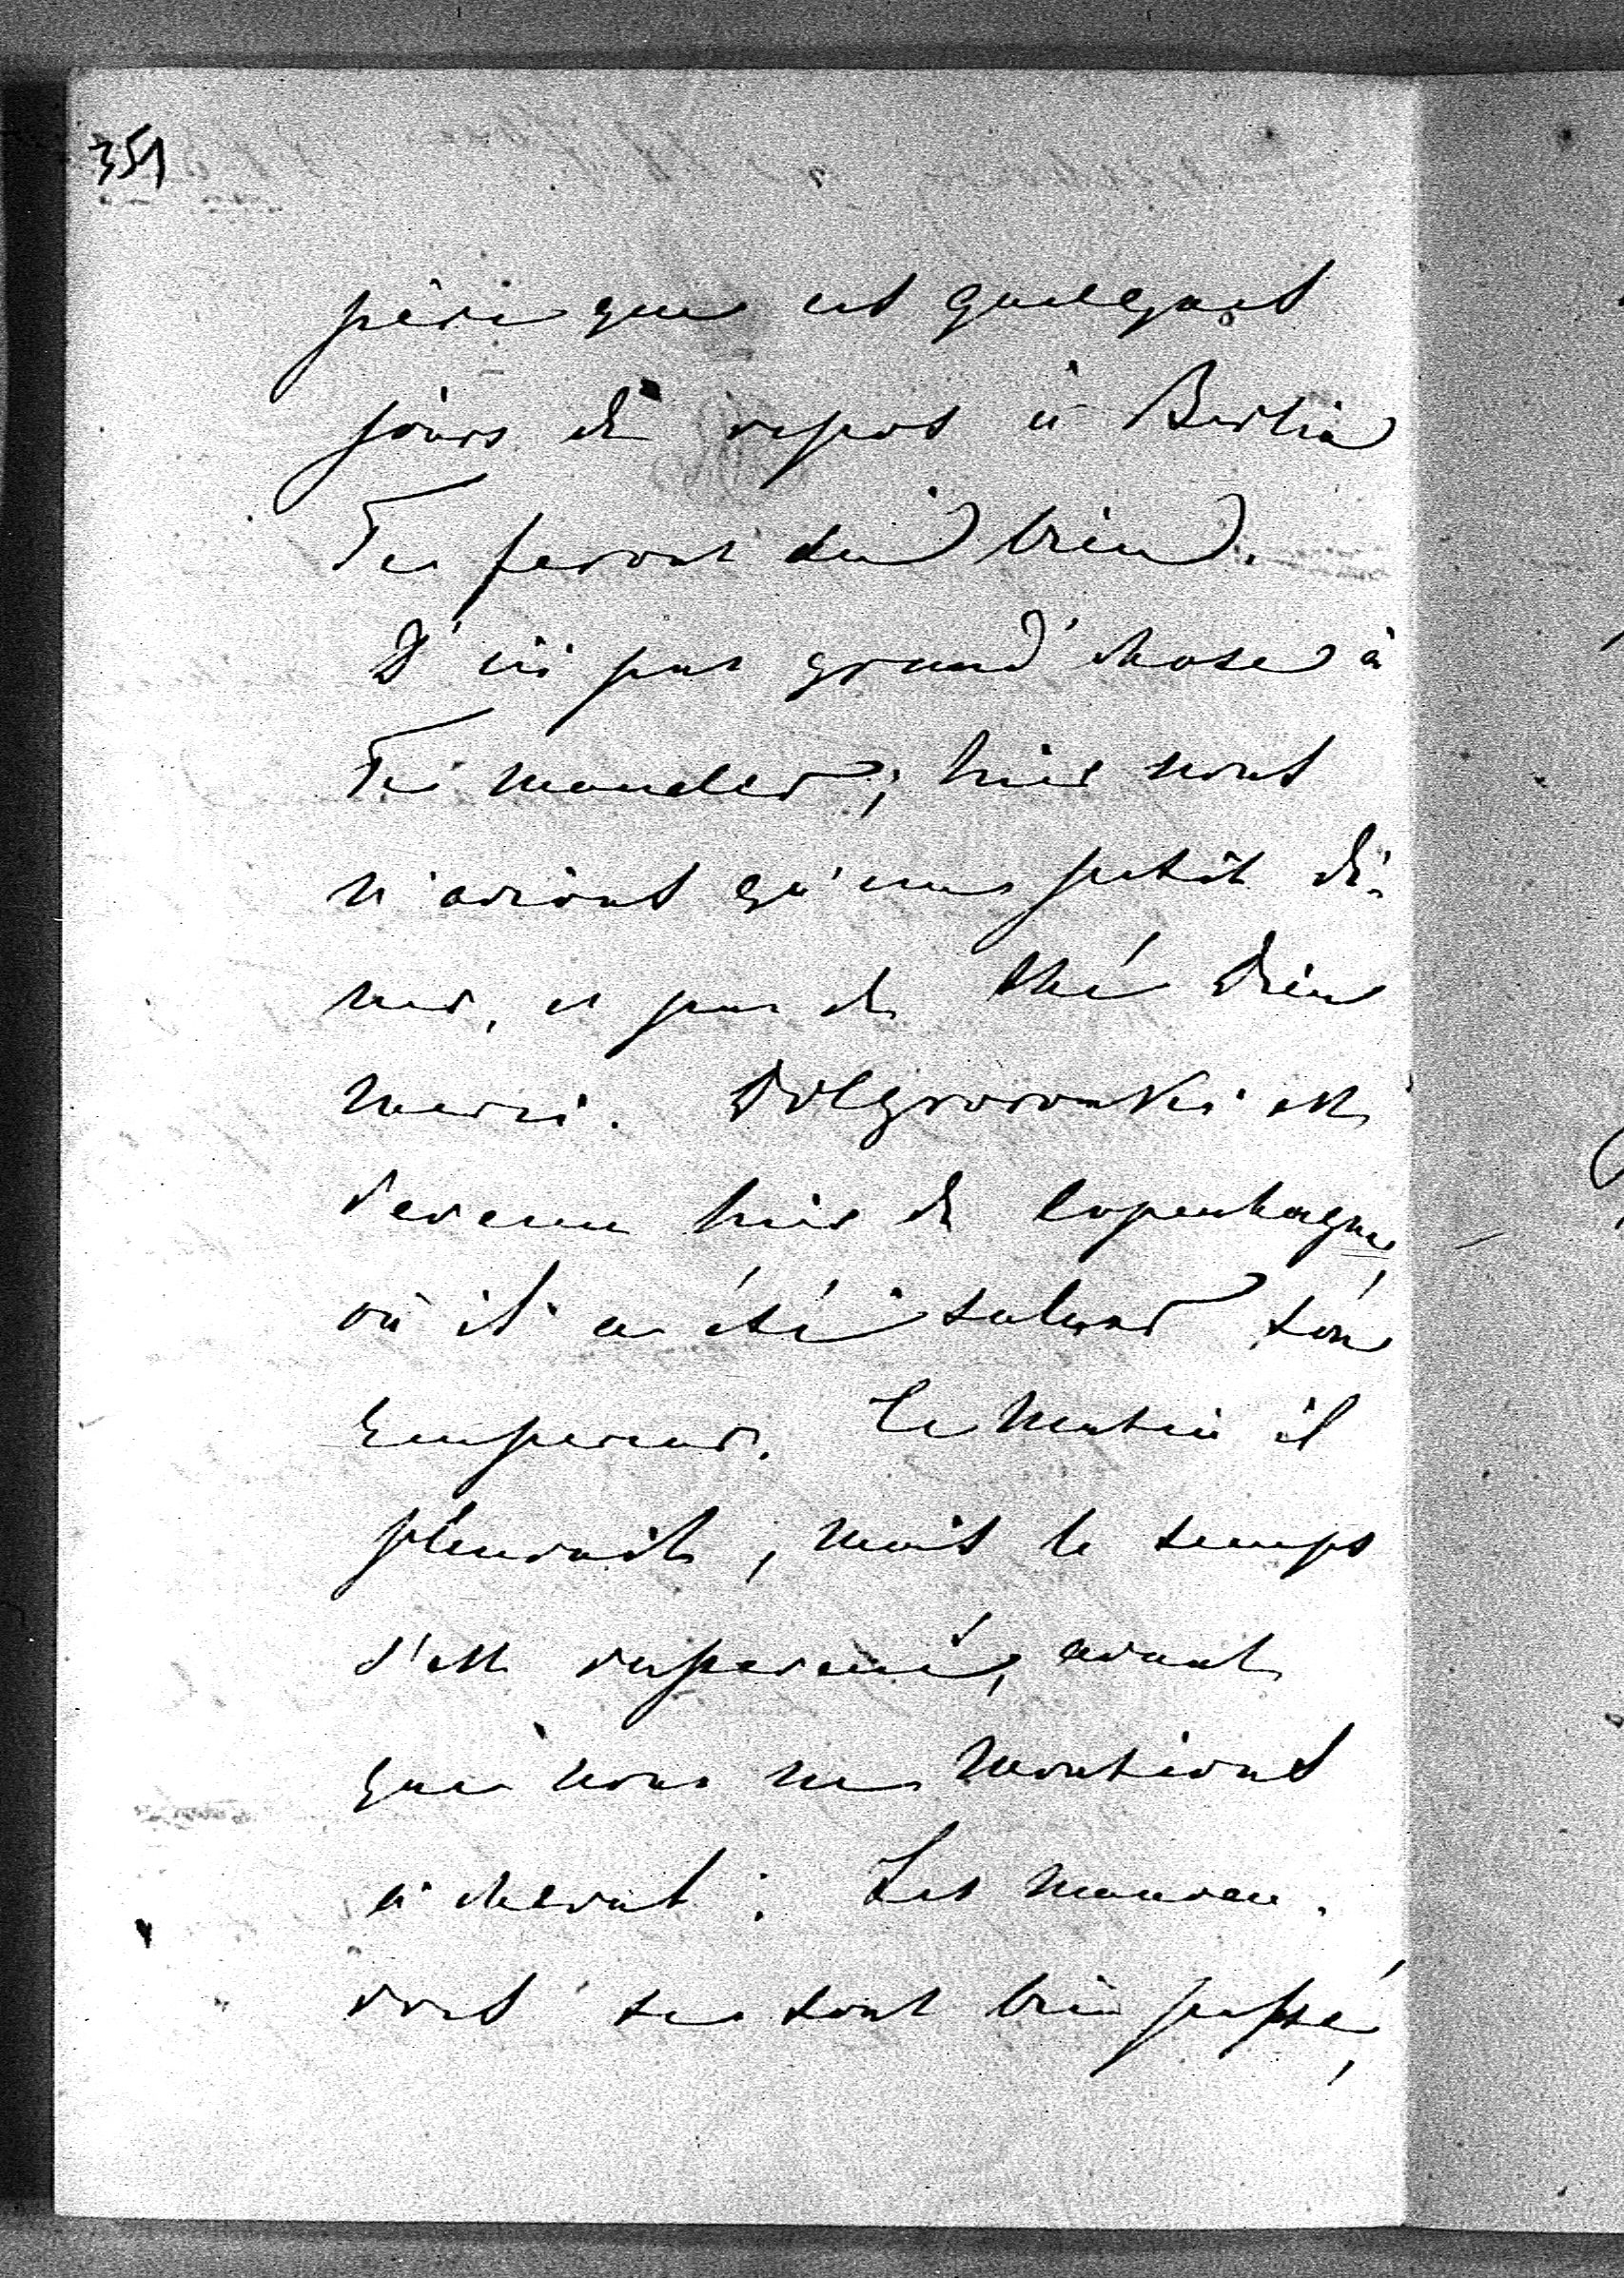 351
père que ces quelques
jours de repos à Berlin
Te feront du bien.
D'ici pas grand' chose à
Te mander; hier nous
n'avions qu'un petit dî-
ner, et pas de thé Dieu
merci. Dolgorouki est
revenu hier de Copenhague,
où il a été saluer son
Empereur. Ce matin il
pleuvait, mais le temps
s'est rasserené, avant
que nous ne montions
à cheval. Les manoeu-
vres se sont bien passé,